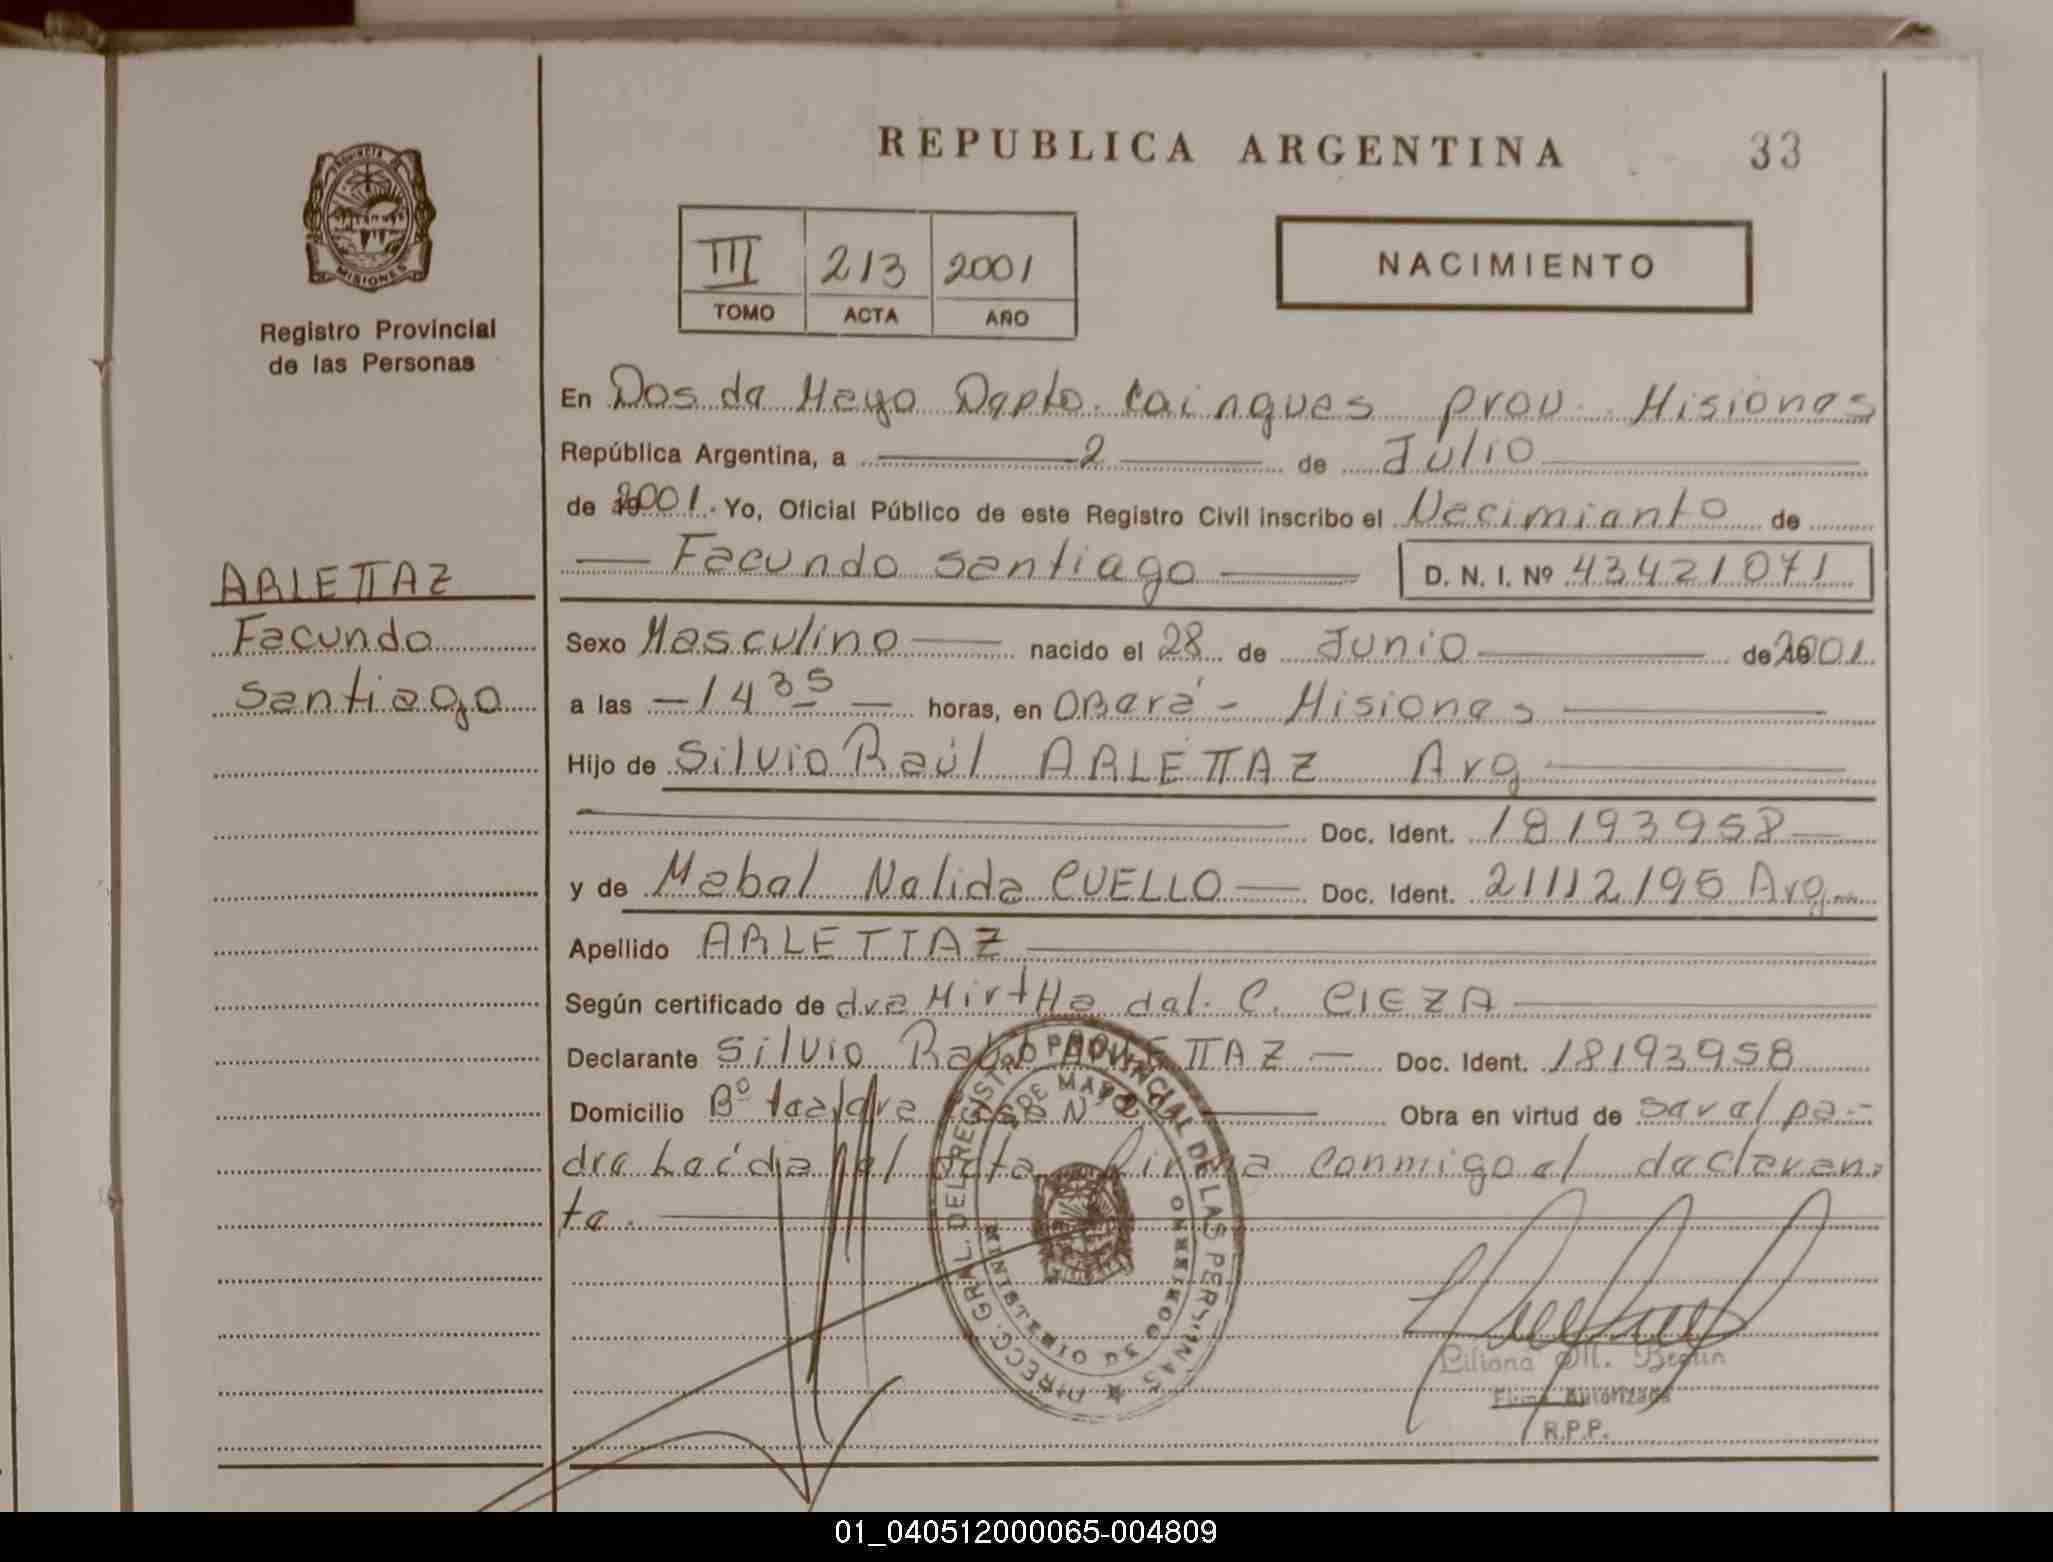 REPUBLICA ARGENTINA
33
PROVINCIA DE
MISIONES
Registro Provincial
de las Personas
III 213 2001
TOMO ACTA AÑO
NACIMIENTO
En Dos de Mayo Depto. Cainguas prov. Misiones
República Argentina, a 2 de Julio
de 2001. Yo, Oficial Público de este Registro Civil inscribo el Nacimiento de
Facundo Santiago D. N. I. Nº 43421071
ARLETTAZ
Facundo
Santiago
Sexo Masculino nacido el 28 de Junio de 2001
a las 14 35 horas, en OBerá - Misiones
Hijo de Silvio Raúl ARLETTAZ Arg
Doc. Ident. 18193958
y de Mabel Nelida CUELLO Doc. Ident. 21112195 Arg
Apellido ARLETTAZ
Según certificado de dra MirtHa del C. CIEZA
Declarante Silvio Raúl ARLETTAZ Doc. Ident. 18193958
Domicilio Bº Obra en virtud de ser el pa-
dre Leída el Acta Firma conmigo el declaran-
te.
DIRECC. GRAL. DEL REGISTRO PROVINCIAL DE LAS PERSONAS
2 DE MAYO
MINISTERIO DE GOBIERNO
Liliana M.
Firma Autorizada
R.P.P.
01_040512000065-004809